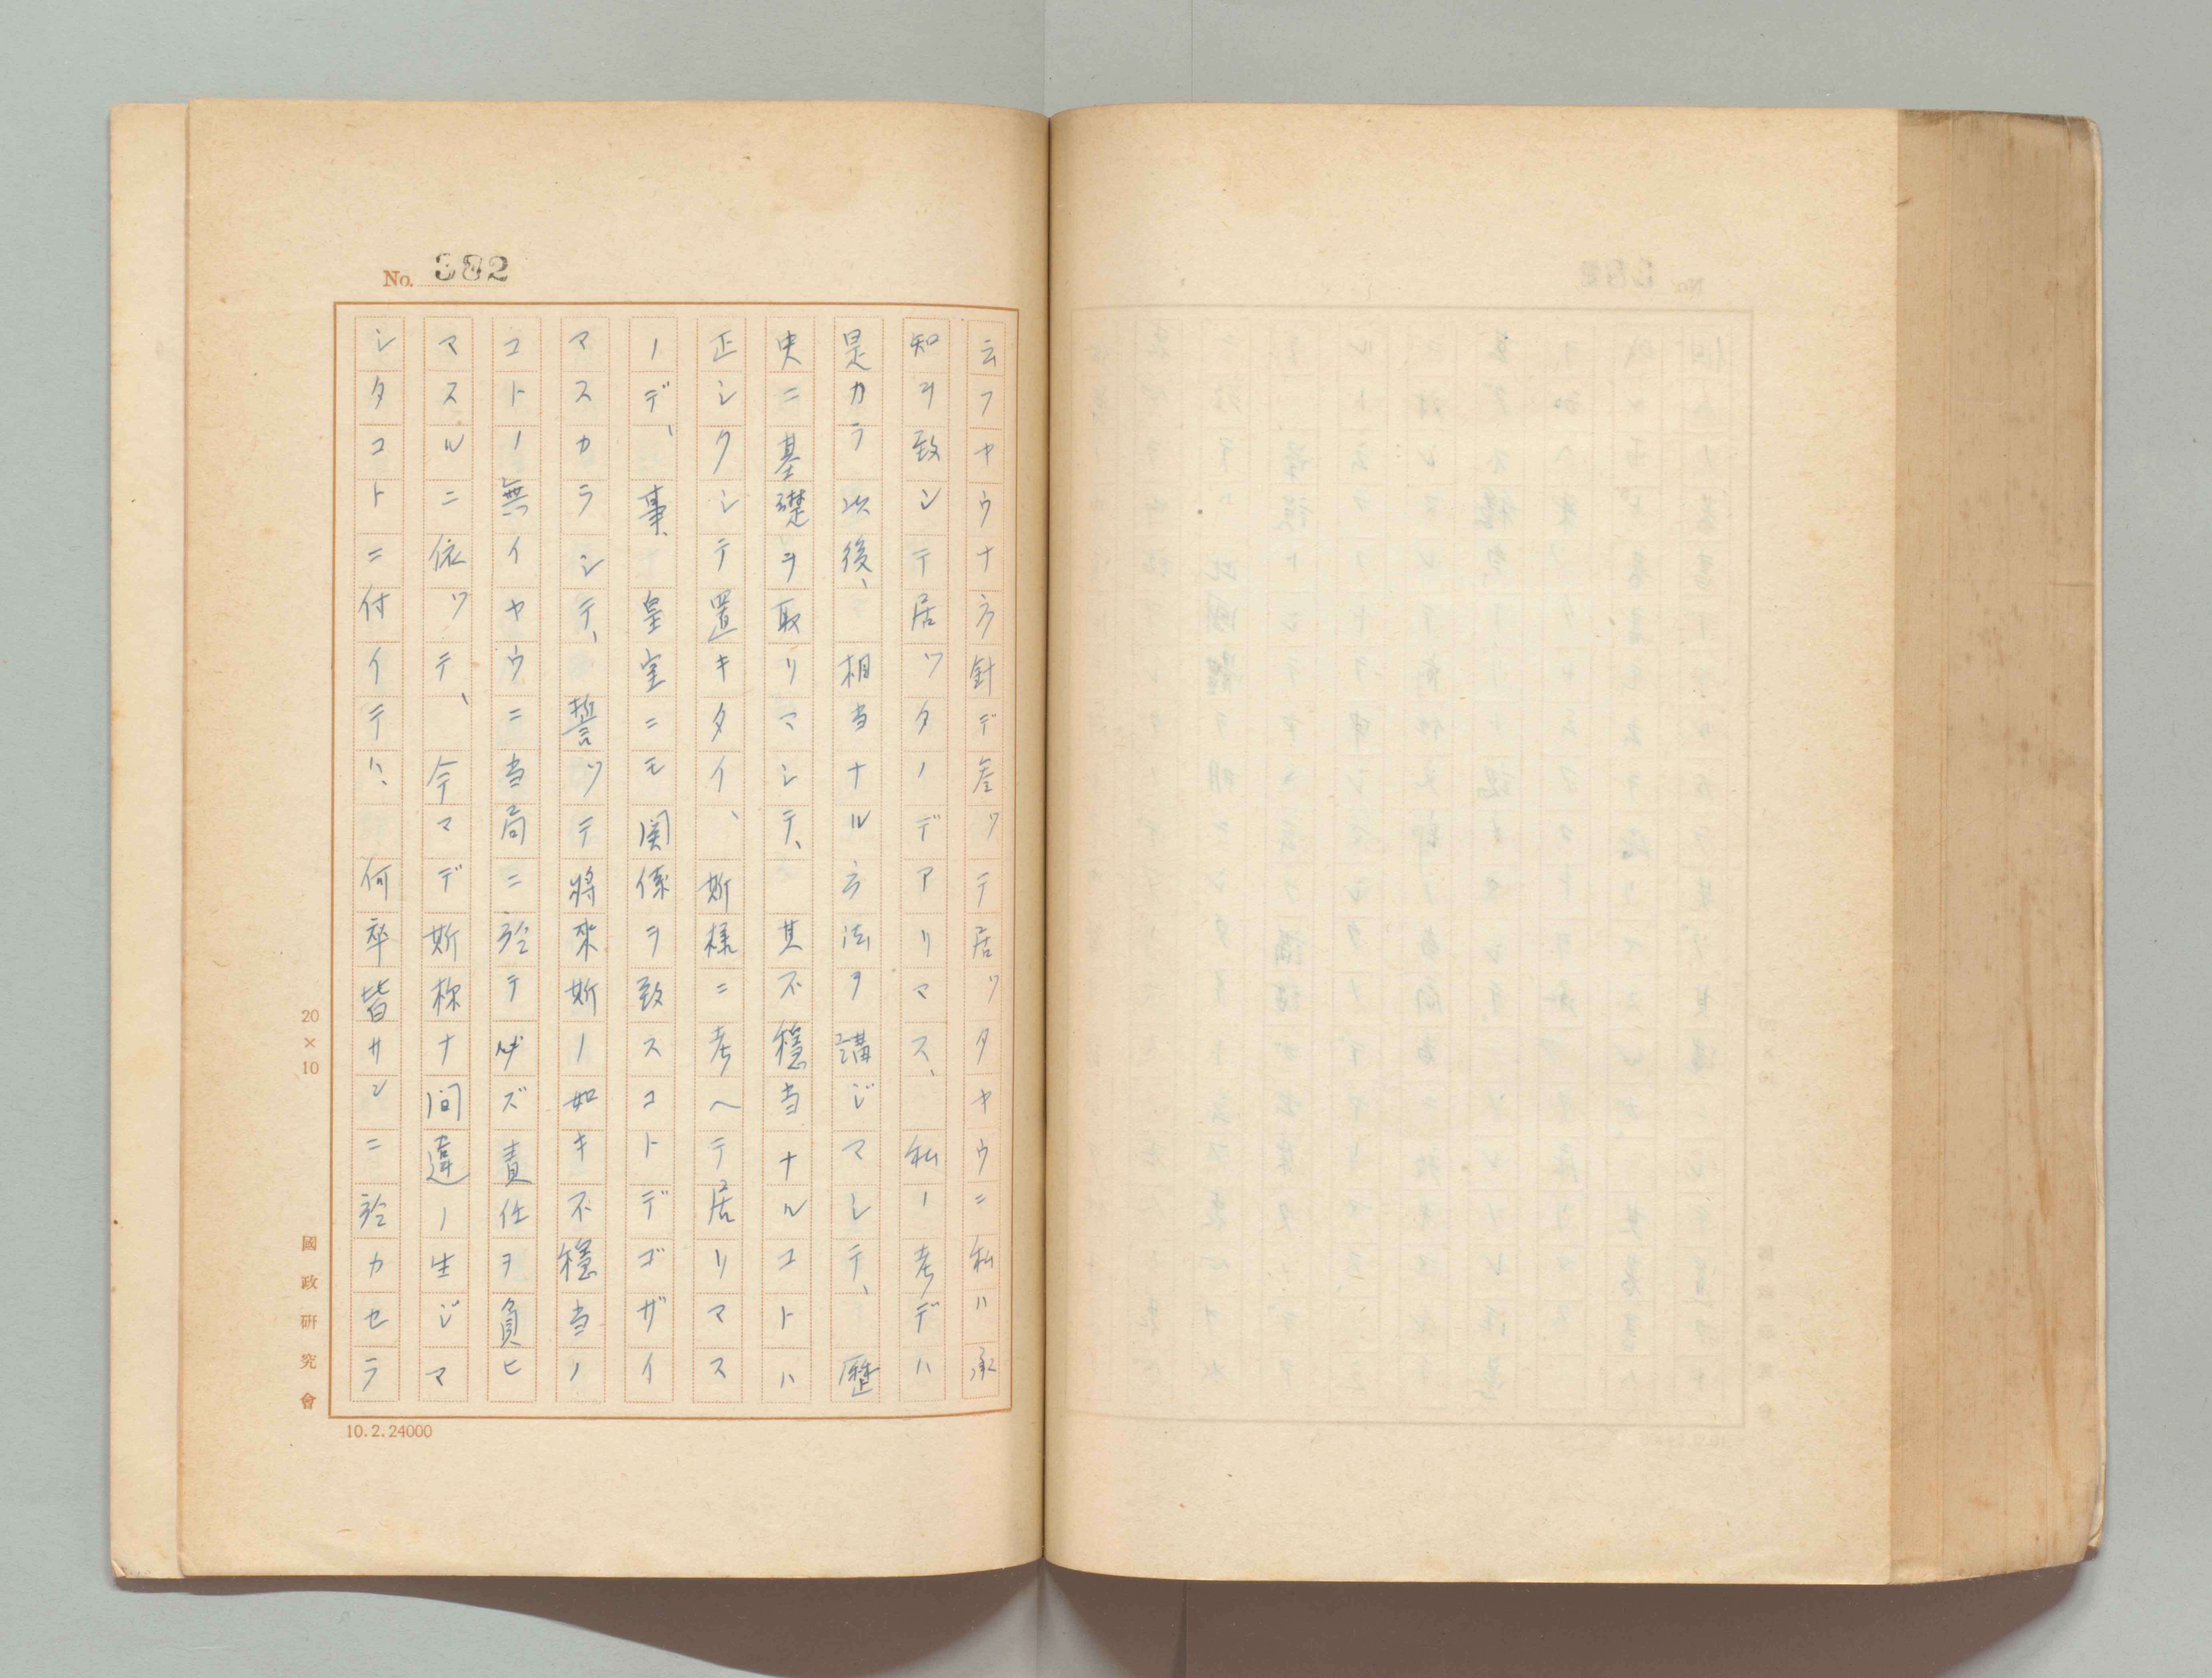 No. 382
云フヤウナ方針デ參ツテ居ツタヤウニ私ハ承
知ヲ致シテ居ツタノデアリマス、私ノ考デハ
是カラ以後、相当ナル方法ヲ講ジマシテ、歷
史ニ基礎ヲ取リマシテ、其不穏当ナルコトハ
正シクシテ置キタイ、斯様ニ考ヘテ居リマス
ノデ、事、皇室ニモ関係ヲ致スコトデゴザイ
マスカラシテ、誓ツテ將來斯ノ如キ不穏当ノ
コトノ無イヤウニ当局ニ於テ必ズ責任ヲ負ヒ
マスルニ依ツテ、今マデ斯様ナ間違ノ生ジマ
シタコトニ付イテハ、何卒皆サンニ於カセラ
20×10
國政研究會
10.2.24000